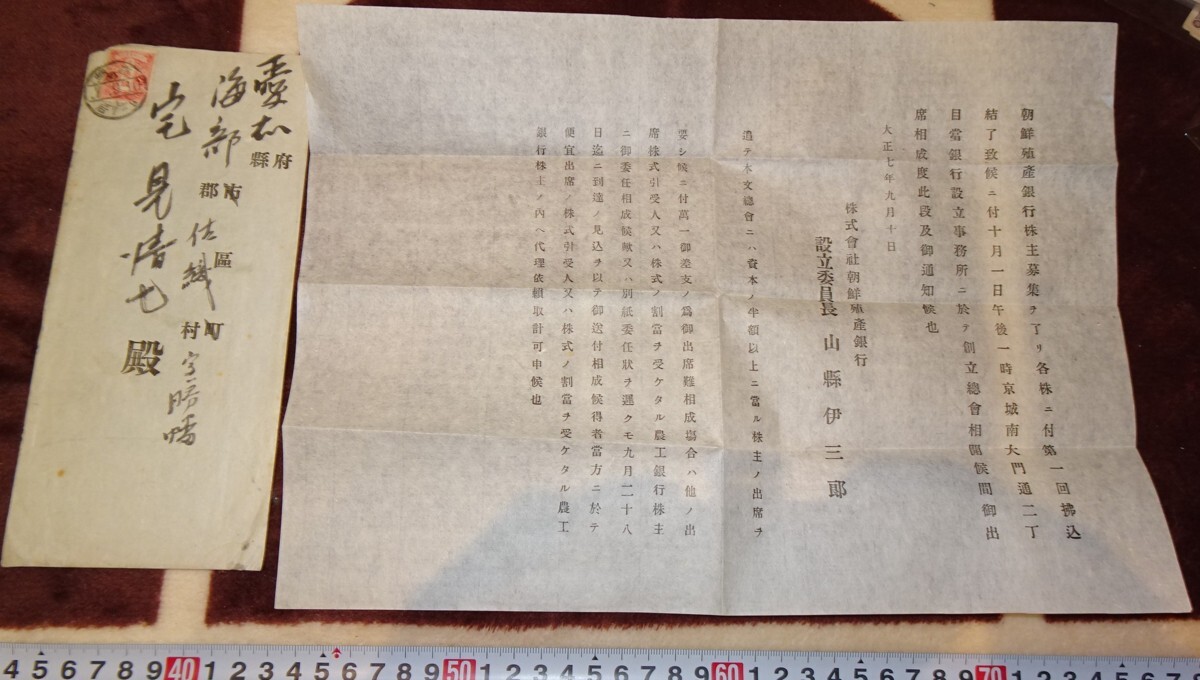 朝鮮殖產銀行株主募集ヲ了リ各株ニ付第一回拂込
結了致候ニ付十月一日午後一時京城南大門通二丁
目當銀行設立事務所ニ於テ創立總會相開候間御出
席相成度此段及御通知候也
大正七年九月十日
株式會社朝鮮殖產銀行
設立委員長 山縣伊三郎
追テ本文總會ニハ資本ノ半額以上ニ當ル株主ノ出席ヲ
要シ候ニ付萬一御差支ノ爲御出席難相成塲合ハ他ノ出
席株式引受人又ハ株式ノ割當ヲ受ケタル農工銀行株主
ニ御委任相成候歟又ハ別紙委任狀ヲ遲クモ九月二十八
日迄ニ到達ノ見込ヲ以テ御送付相成候得者當方ニ於テ
便宜出席ノ株式引受人又ハ株式ノ割當ヲ受ケタル農工
銀行株主ノ內ヘ代理依賴取計可申候也
愛知
府
縣
海部
市
郡
佐織
區
町
村
字勝幡
宅見清七
殿
4 5 6 7 8 9 40 1 2 3 4 5 6 7 8 9 50 1 2 3 4 5 6 7 8 9 60 1 2 3 4 5 6 7 8 9 70 1 2 3 4 5 6 7